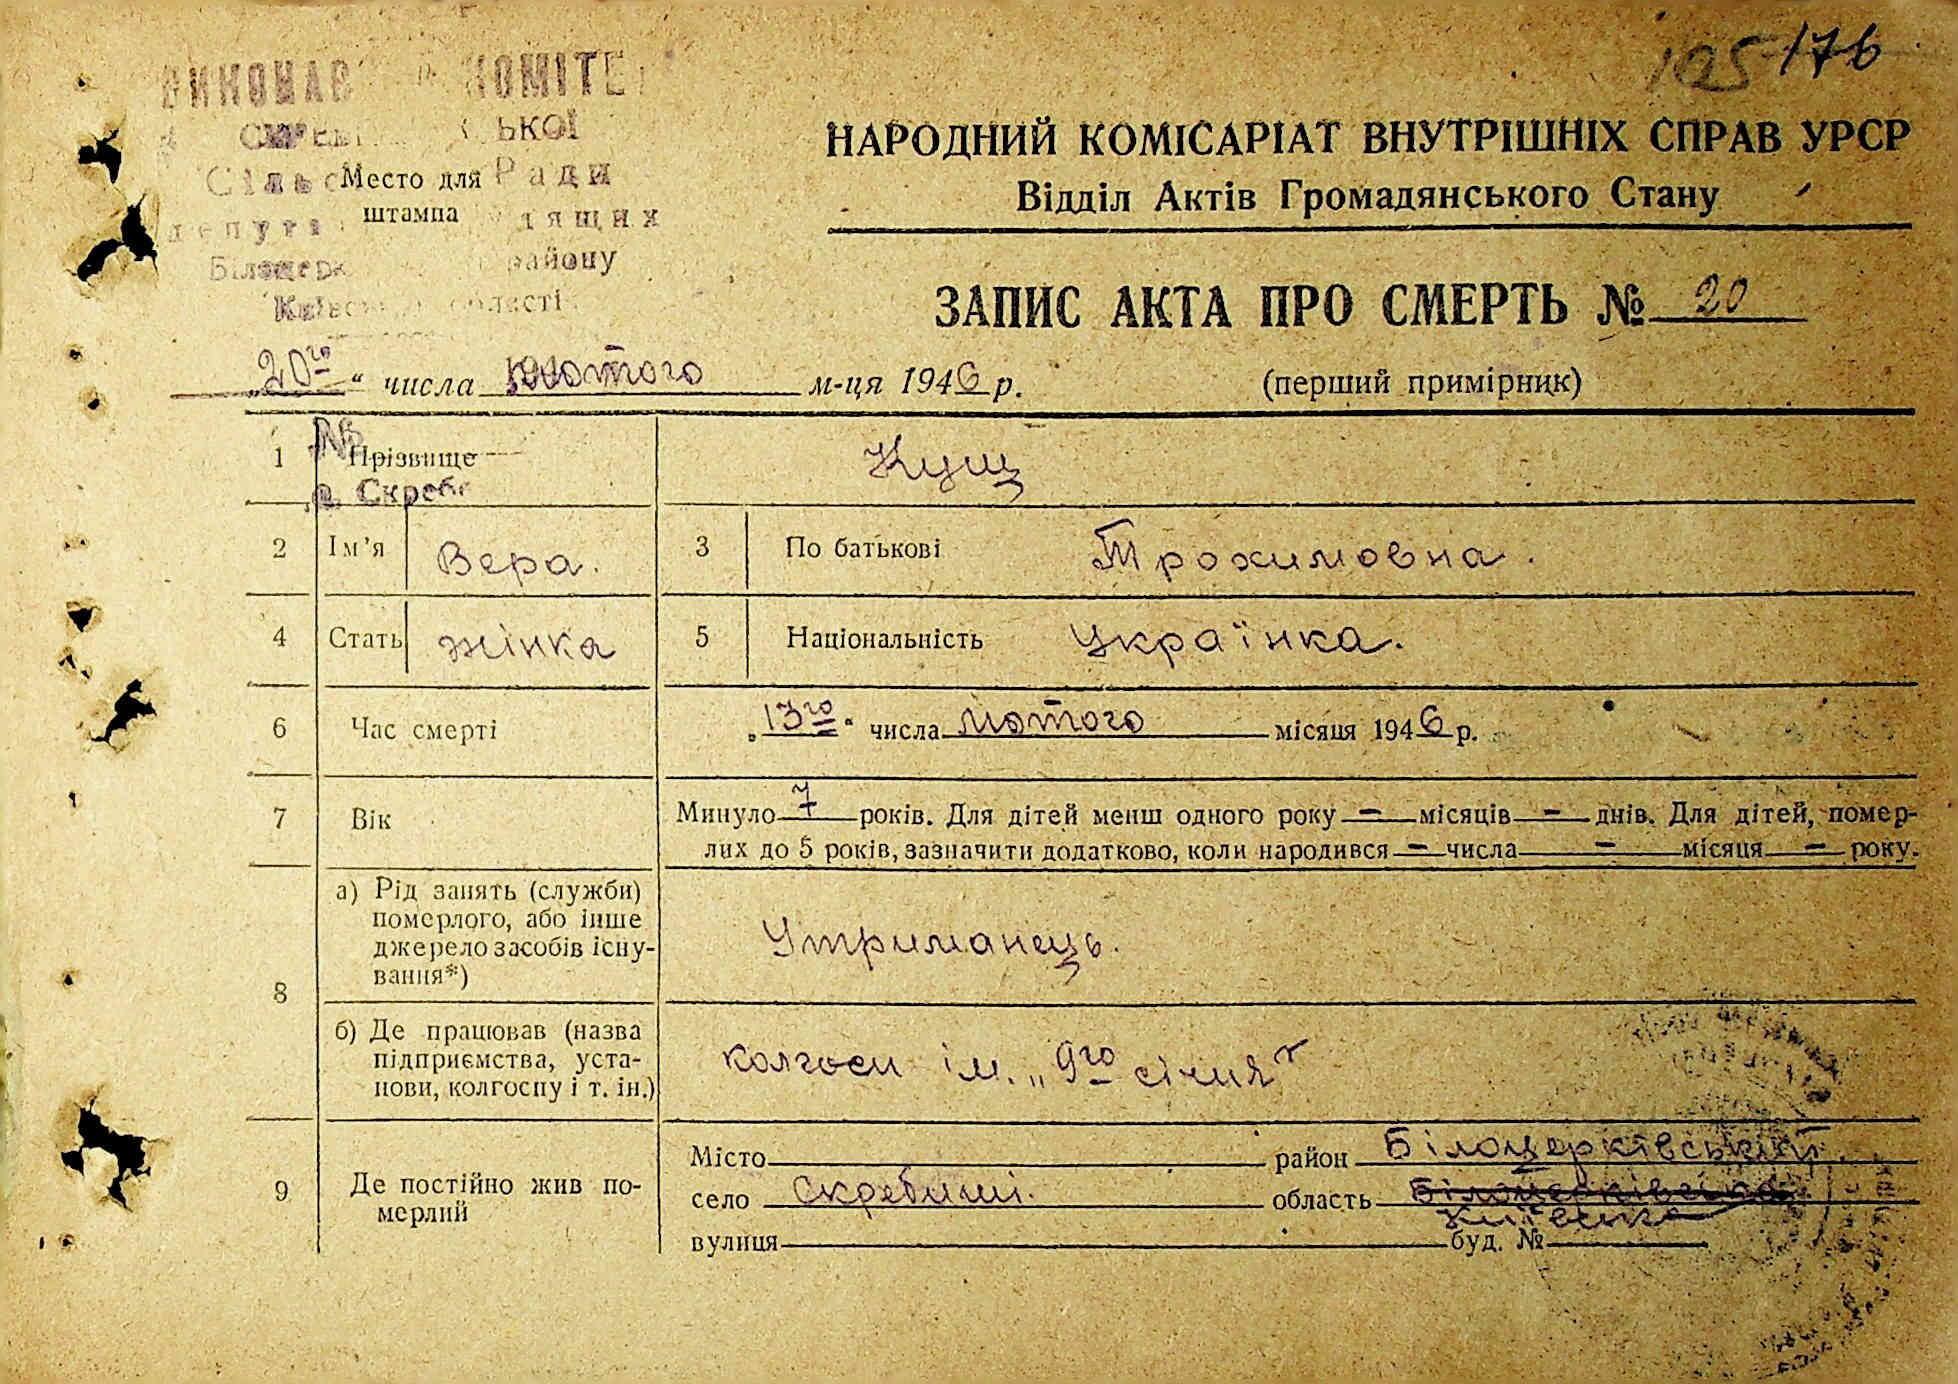 125 176
ВИКОНАВ КОМІТЕ
СКРЕ ЬКОЇ
Сільс Ради
Место для
штампа
депута дящих
Білоцерк району
Київс області
НАРОДНИЙ КОМІСАРІАТ ВНУТРІШНІХ СПРАВ УРСР
Відділ Актів Громадянського Стану
ЗАПИС АКТА ПРО СМЕРТЬ № 20
„20го“ числа лютого м-ця 1946 р.
(перший примірник)
№
1 Прізвище Кущ
с. Скреб
2 Ім'я Вера. 3 По батькові Трохимовна.
4 Стать жінка 5 Національність українка.
6 Час смерті „13го“ числа лютого місяця 1946 р.
7 Вік Минуло 7 років. Для дітей менш одного року — місяців — днів. Для дітей, помер-
лих до 5 років, зазначити додатково, коли народився — числа — місяця — року.
8
а) Рід занять (служби)
померлого, або інше
джерело засобів існу-
вання*)
Утриманець.
б) Де працював (назва
підприємства, уста-
нови, колгоспу і т. ін.)
колгосп ім. „9го січня"
9 Де постійно жив по-
мерлий
Місто район Білоцерківський.
село Скребиші. область Білоцерківська
Київська
вулиця буд. №